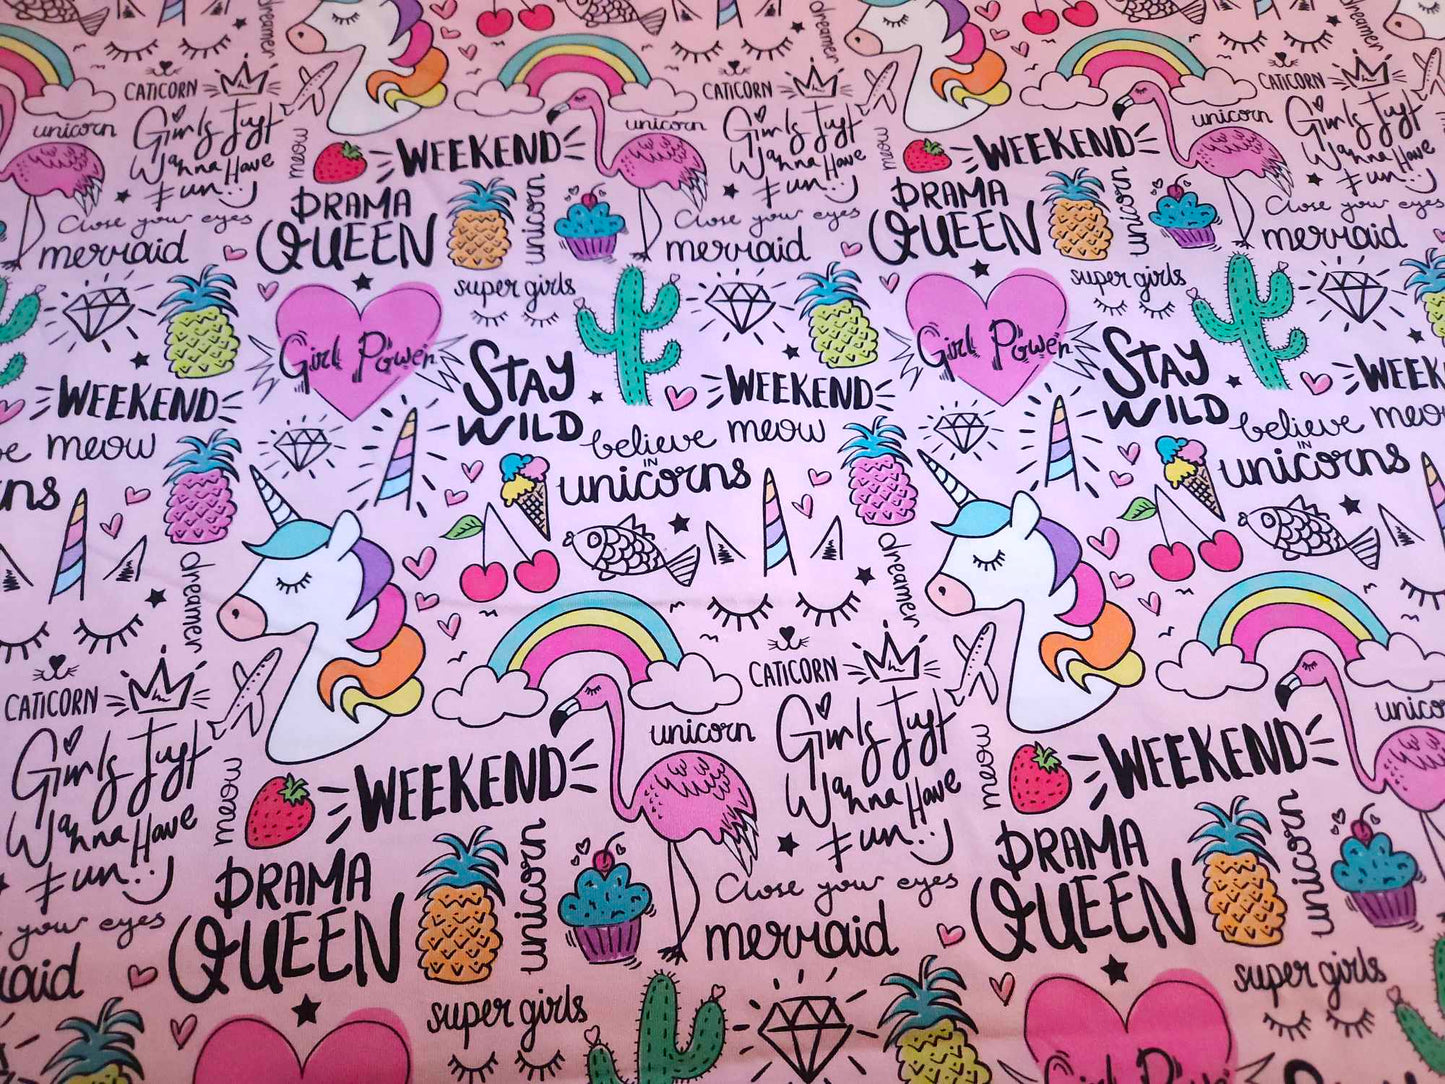 dreamer
dreamer
dreamer
CATICORN
CATICORN
CATICORN
unicorn
Girls Just
Wanna Have
Fun
meow
WEEKEND
unicorn
Girls Just
Wanna Have
Fun
meow
WEEKEND
unicorn
Girls Just
Wanna Have
Fun
Close your eyes
mermaid
DRAMA
QUEEN
unicorn
Close your eyes
mermaid
DRAMA
QUEEN
unicorn
Close your eyes
mermaid
super girls
super girls
Girl Power
STAY
WILD
Girl Power
STAY
WILD
WEEKEND
WEEKEND
WEEKEND
meow
believe
IN
unicorns
meow
believe
IN
unicorns
dreamer
dreamer
CATICORN
CATICORN
Girls Just
Wanna Have
Fun
meow
WEEKEND
unicorn
Girls Just
Wanna Have
Fun
meow
WEEKEND
unicorn
your eyes
DRAMA
QUEEN
unicorn
Close your eyes
mermaid
DRAMA
QUEEN
unicorn
super girls
super girls
Girl Power